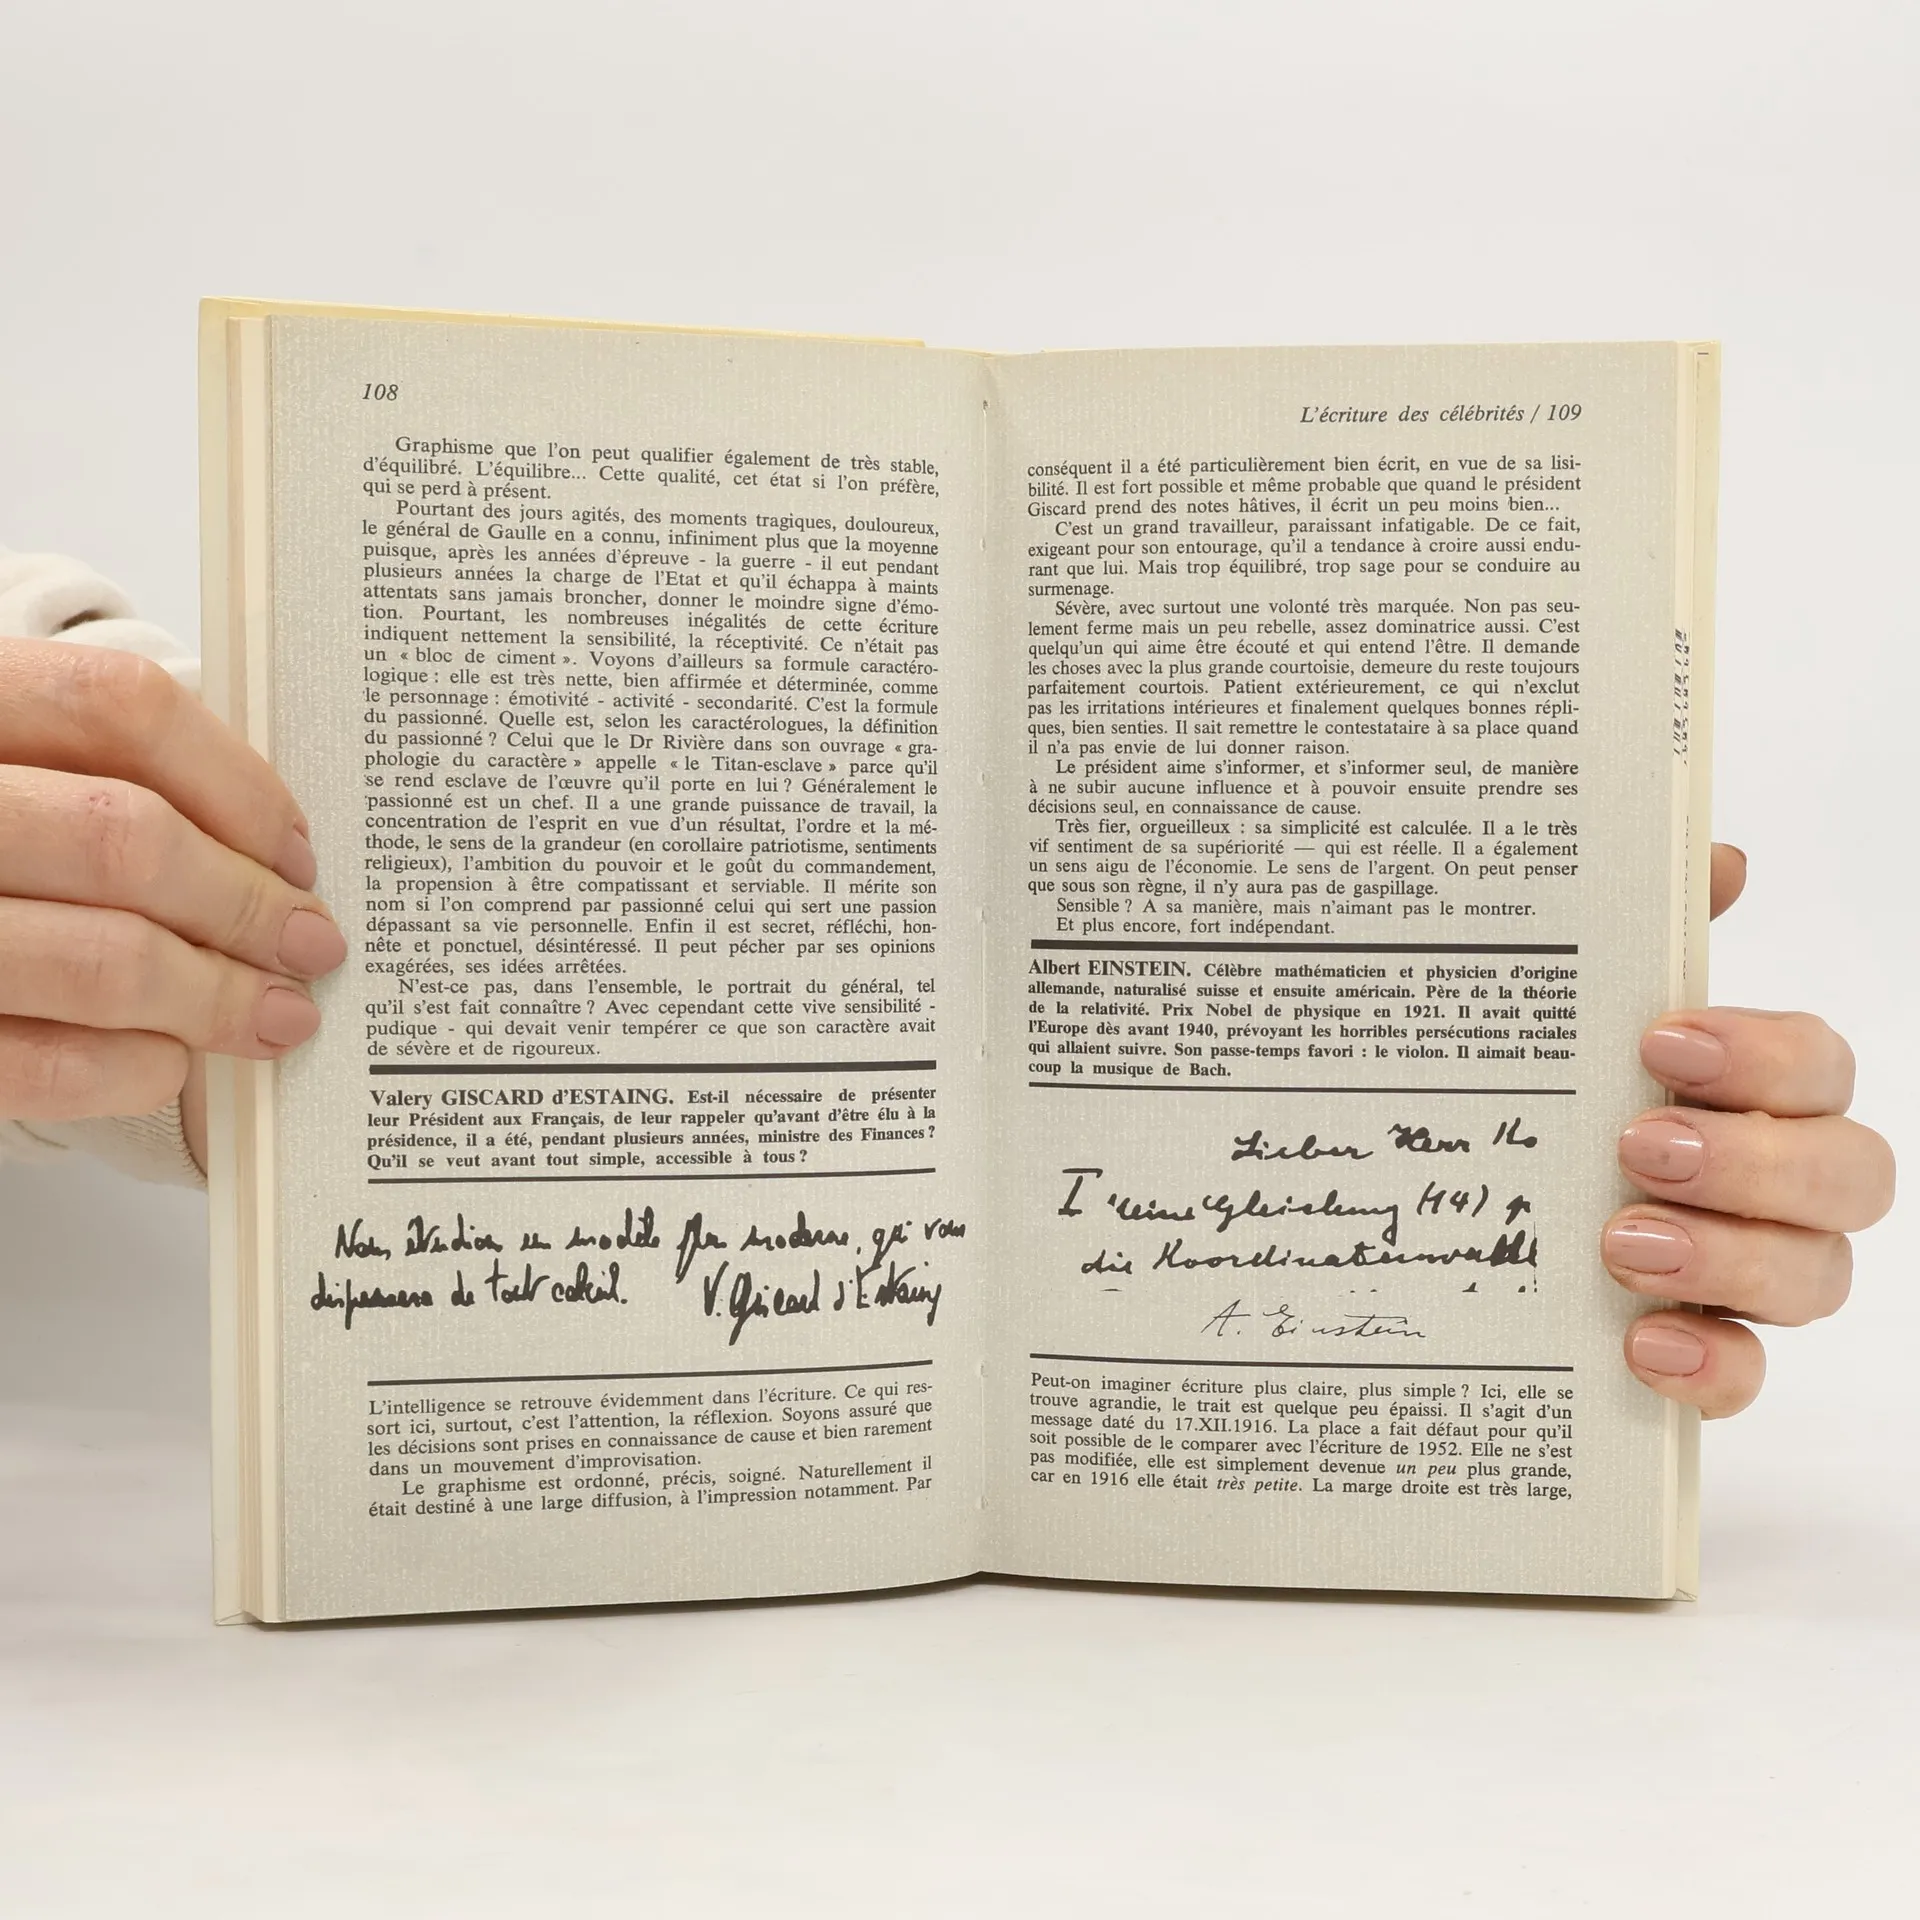 108
Graphisme que l'on peut qualifier également de très stable,
d'équilibré. L'équilibre... Cette qualité, cet état si l'on préfère,
qui se perd à présent.
Pourtant des jours agités, des moments tragiques, douloureux,
le général de Gaulle en a connu, infiniment plus que la moyenne
puisque, après les années d'épreuve - la guerre - il eut pendant
plusieurs années la charge de l'Etat et qu'il échappa à maints
attentats sans jamais broncher, donner le moindre signe d'émo-
tion. Pourtant, les nombreuses inégalités de cette écriture
indiquent nettement la sensibilité, la réceptivité. Ce n'était pas
un « bloc de ciment ». Voyons d'ailleurs sa formule caractéro-
logique : elle est très nette, bien affirmée et déterminée, comme
le personnage : émotivité - activité - secondarité. C'est la formule
du passionné. Quelle est, selon les caractérologues, la définition
du passionné ? Celui que le Dr Rivière dans son ouvrage « gra-
phologie du caractère » appelle « le Titan-esclave » parce qu'il
se rend esclave de l'œuvre qu'il porte en lui ? Généralement le
passionné est un chef. Il a une grande puissance de travail, la
concentration de l'esprit en vue d'un résultat, l'ordre et la mé-
thode, le sens de la grandeur (en corollaire patriotisme, sentiments
religieux), l'ambition du pouvoir et le goût du commandement,
la propension à être compatissant et serviable. Il mérite son
nom si l'on comprend par passionné celui qui sert une passion
dépassant sa vie personnelle. Enfin il est secret, réfléchi, hon-
nête et ponctuel, désintéressé. Il peut pécher par ses opinions
exagérées, ses idées arrêtées.
N'est-ce pas, dans l'ensemble, le portrait du général, tel
qu'il s'est fait connaître ? Avec cependant cette vive sensibilité -
pudique - qui devait venir tempérer ce que son caractère avait
de sévère et de rigoureux.
Valery GISCARD d'ESTAING. Est-il nécessaire de présenter
leur Président aux Français, de leur rappeler qu'avant d'être élu à la
présidence, il a été, pendant plusieurs années, ministre des Finances ?
Qu'il se veut avant tout simple, accessible à tous ?
Nous étudions un modèle plus moderne, qui vous
dispensera de tout calcul. V. Giscard d'Estaing
L'intelligence se retrouve évidemment dans l'écriture. Ce qui res-
sort ici, surtout, c'est l'attention, la réflexion. Soyons assuré que
les décisions sont prises en connaissance de cause et bien rarement
dans un mouvement d'improvisation.
Le graphisme est ordonné, précis, soigné. Naturellement il
était destiné à une large diffusion, à l'impression notamment. Par
L'écriture des célébrités / 109
conséquent il a été particulièrement bien écrit, en vue de sa lisi-
bilité. Il est fort possible et même probable que quand le président
Giscard prend des notes hâtives, il écrit un peu moins bien...
C'est un grand travailleur, paraissant infatigable. De ce fait,
exigeant pour son entourage, qu'il a tendance à croire aussi endu-
rant que lui. Mais trop équilibré, trop sage pour se conduire au
surmenage.
Sévère, avec surtout une volonté très marquée. Non pas seu-
lement ferme mais un peu rebelle, assez dominatrice aussi. C'est
quelqu'un qui aime être écouté et qui entend l'être. Il demande
les choses avec la plus grande courtoisie, demeure du reste toujours
parfaitement courtois. Patient extérieurement, ce qui n'exclut
pas les irritations intérieures et finalement quelques bonnes répli-
ques, bien senties. Il sait remettre le contestataire à sa place quand
il n'a pas envie de lui donner raison.
Le président aime s'informer, et s'informer seul, de manière
à ne subir aucune influence et à pouvoir ensuite prendre ses
décisions seul, en connaissance de cause.
Très fier, orgueilleux : sa simplicité est calculée. Il a le très
vif sentiment de sa supériorité — qui est réelle. Il a également
un sens aigu de l'économie. Le sens de l'argent. On peut penser
que sous son règne, il n'y aura pas de gaspillage.
Sensible ? A sa manière, mais n'aimant pas le montrer.
Et plus encore, fort indépendant.
Albert EINSTEIN. Célèbre mathématicien et physicien d'origine
allemande, naturalisé suisse et ensuite américain. Père de la théorie
de la relativité. Prix Nobel de physique en 1921. Il avait quitté
l'Europe dès avant 1940, prévoyant les horribles persécutions raciales
qui allaient suivre. Son passe-temps favori : le violon. Il aimait beau-
coup la musique de Bach.
Lieber Herr Ko
I Gleichung (14)
die Koordinatenwahl
A. Einstein
Peut-on imaginer écriture plus claire, plus simple ? Ici, elle se
trouve agrandie, le trait est quelque peu épaissi. Il s'agit d'un
message daté du 17.XII.1916. La place a fait défaut pour qu'il
soit possible de le comparer avec l'écriture de 1952. Elle ne s'est
pas modifiée, elle est simplement devenue un peu plus grande,
car en 1916 elle était très petite. La marge droite est très large,